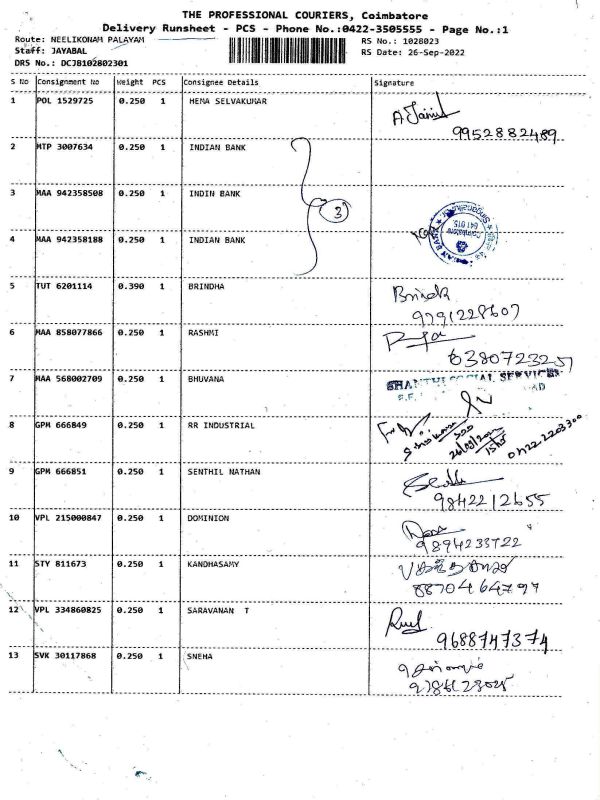 THE PROFESSIONAL COURIERS, Coimbatore
Delivery Runsheet - PCS - Phone No.:0422-3505555 - Page No.:1
Route: NEELIKONAM PALAYAM
RS No.: 1028023
Staff: JAYABAL
RS Date: 26-Sep-2022
DRS No.: DCJB102802301
S No Consignment No Weight PCS Consignee Details Signature
1 POL 1529725 0.250 1 HEMA SELVAKUMAR
9952882489
2 MTP 3007634 0.250 1 INDIAN BANK
3 MAA 942358508 0.250 1 INDIN BANK
3
4 MAA 942358188 0.250 1 INDIAN BANK
5 TUT 6201114 0.390 1 BRINDHA
9791228607
6 MAA 858077866 0.250 1 RASHMI
6380723257
7 MAA 568002709 0.250 1 BHUVANA
SHANTHI SOCIAL SERVICES
8 GPM 666849 0.250 1 RR INDUSTRIAL
0422 2203300
9 GPM 666851 0.250 1 SENTHIL NATHAN
9842212655
10 VPL 215000847 0.250 1 DOMINION
9894233722
11 STY 811673 0.250 1 KANDHASAMY
8870464797
12 VPL 334860825 0.250 1 SARAVANAN T
9688747374
13 SVK 30117868 0.250 1 SNEHA